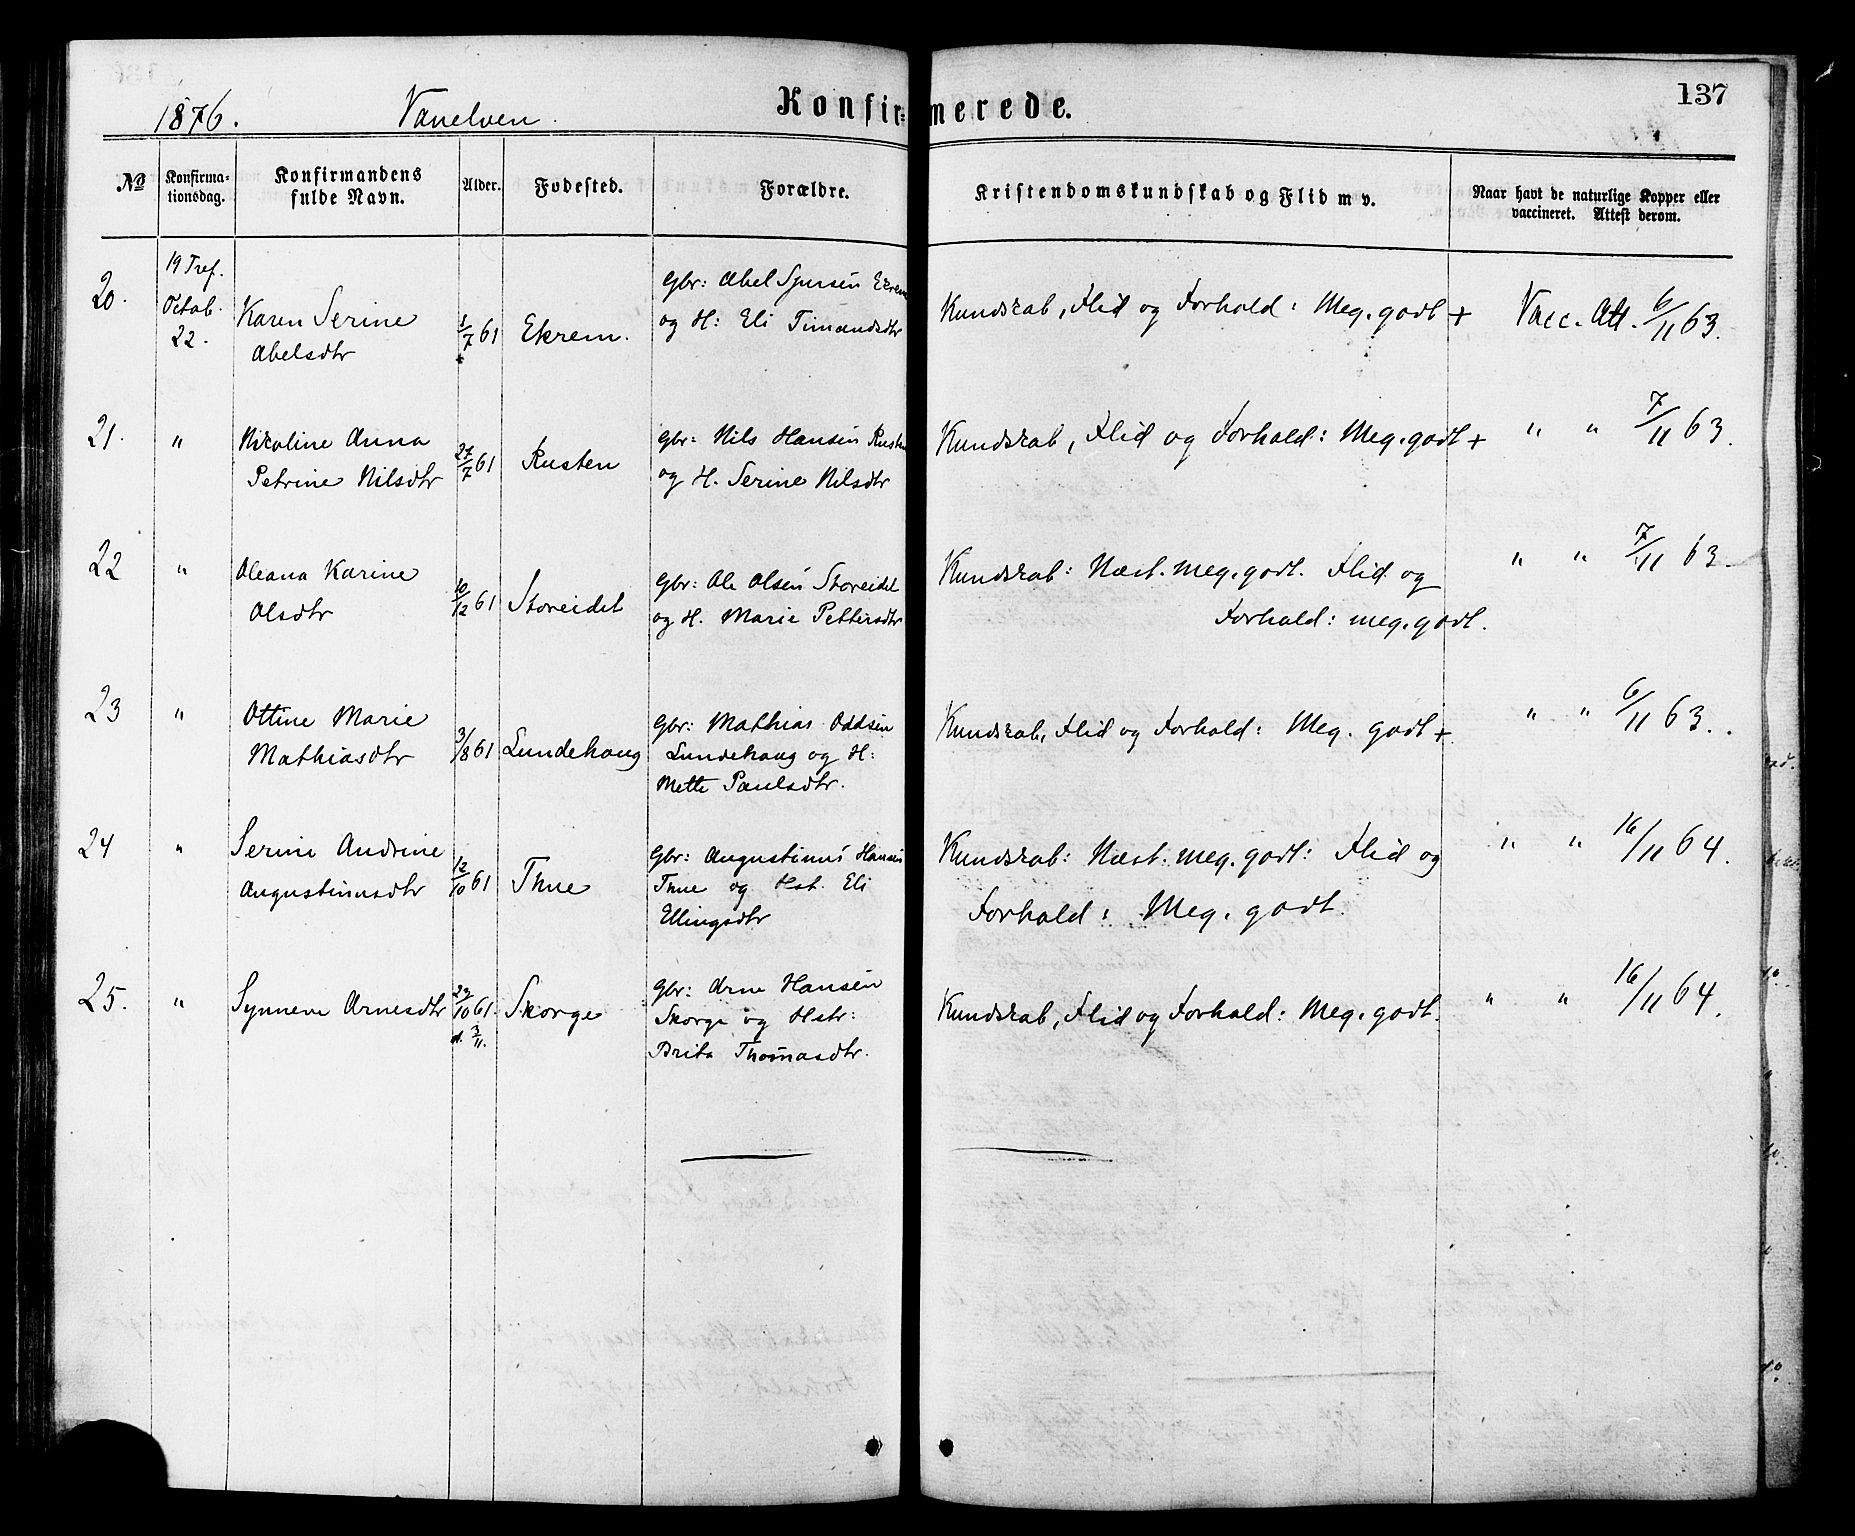 137
1876. Vanelven. Konfir=merede.
No Konfirma-tionsdag. Konfirmandens fulde Navn. Alder. Fødested. Forældre. Kristendomskundskab og Flid m v. Naar havt de naturlige Kopper eller vaccineret. Attest derom.
20. 19 Tref. Octob. 22. Karen Serine Abelsdtr 1/7 61 Ekrem. Gbr: Abel Ekrem og H: Eli Timandsdtr Kundskab, Flid og Forhold: Meg. godt + Vacc. Att. 6/11 63.
21. " Nikoline Anna Petrine Nilsdtr 27/7 61 Rusten Gbr: Nils Hansen Rusten og H. Serine Nilsdtr Kundskab, Flid og Forhold: Meg. godt + " " 7/11 63.
22 " Oleana Karine Olsdtr 10/12 61 Storeidet Gbr: Ole Olsen Storeidet og H. Marie Pettersdtr Kundskab: Næst. meg. godt. Flid og Forhold: meg. godt. " " 7/11 63.
23 " Ottine Marie Mathiasdtr 3/8 61 Lundehaug Gbr: Mathias Oddsen Lundehaug og H: Mette Paulsdtr. Kundskab, Flid og Forhold: Meg. godt + " " 6/11 63.
24 " Serine Andrine Augustinusdtr 12/10 61 Thue Gbr: Augustinus Hansen Thue og Hst. Eli Ellingsdtr Kundskab: Næst. meg. godt: Flid og Forhold: Meg. godt. " " 16/11 64.
25. " Synneve Arnesdtr 23/10 61. d. 3/11. Skorge Gbr: Arne Hansen Skorge og Hstr: Brita Thomasdtr. Kundskab, Flid og Forhold: Meg. godt. " " 16/11 64.